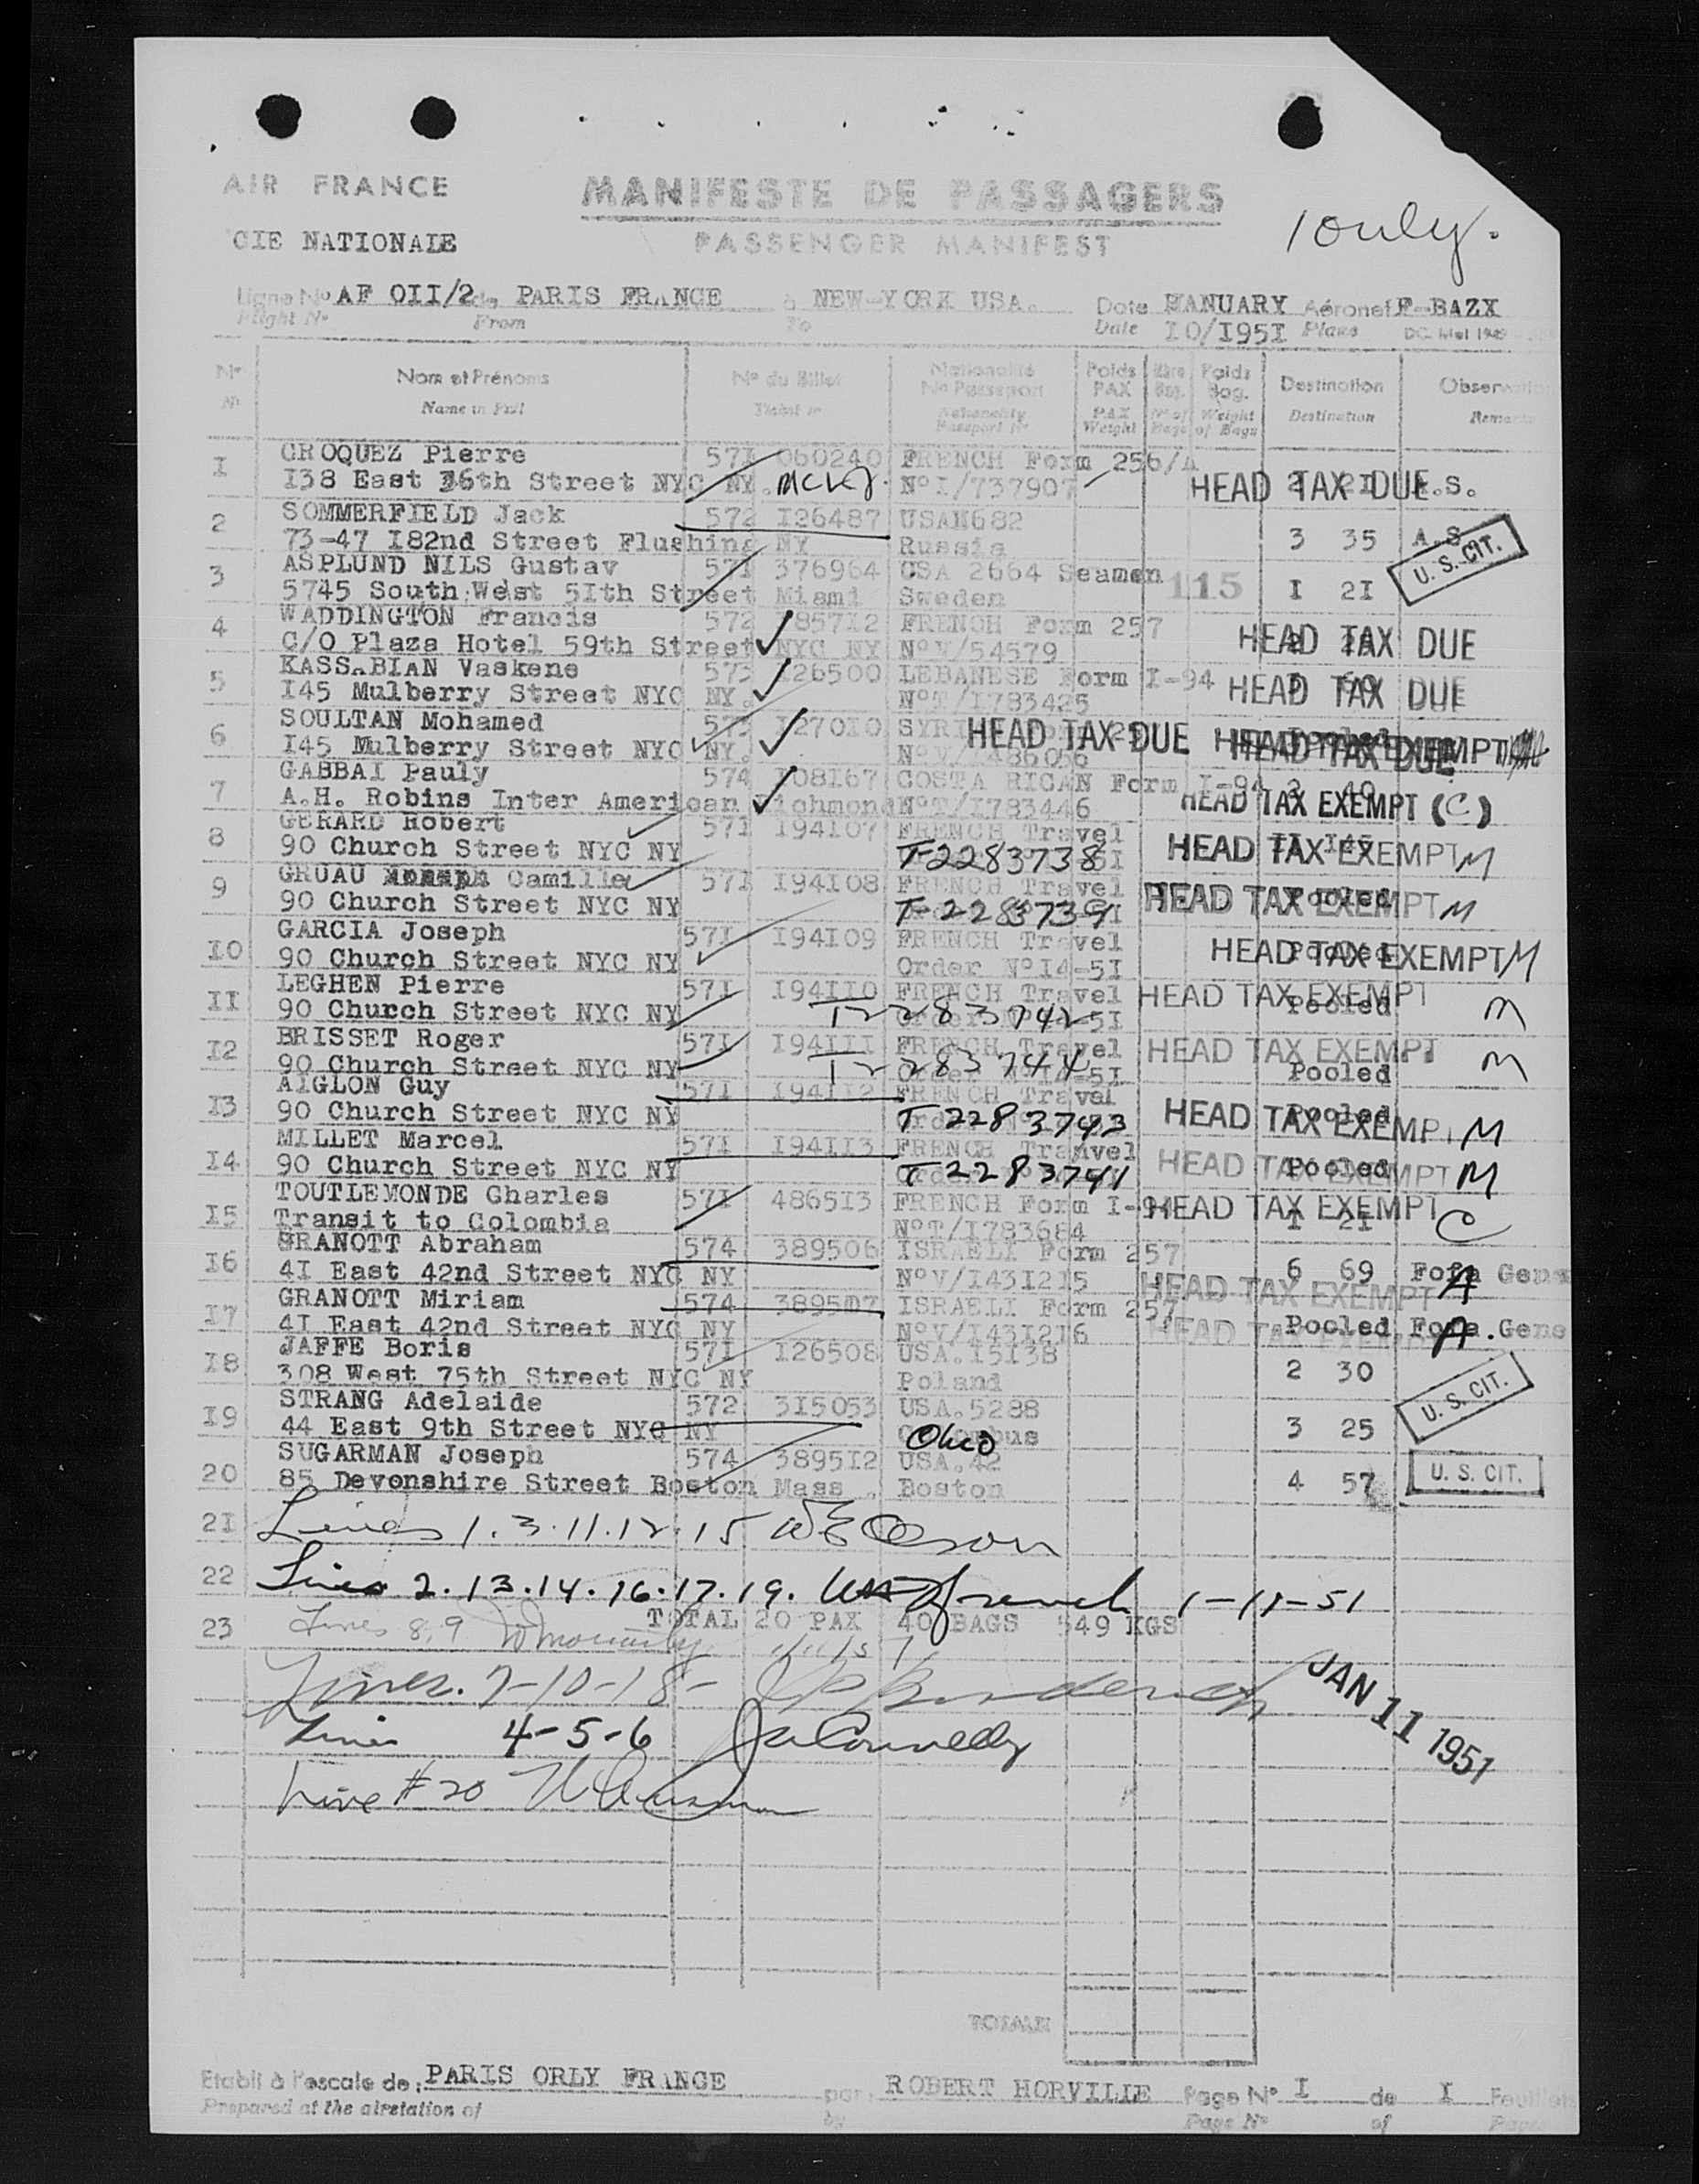 AIR FRANCE
MANIFESTE DE PASSAGERS
1 only.
CIE NATIONALE
PASSENGER MANIFEST
Ligne No AF OII/2 de PARIS FRANCE à NEW-YORK USA. Date JANUARY Aéronef F-BAZX
Flight No From To Date IO/I95I Plane
No Nom et Prénoms No du Billet Nationalité No Passeport Poids PAX Poids Bag. Destination Observ
No Name in Full Ticket No Nationality Passport No PAX Weight No of Bags Weight of Bags Destination Remarks
I CROQUEZ Pierre 57I 060240 FRENCH Form 256/A
I38 East 36th Street NYC NY. No I/737907 HEAD TAX DUE 2 2I .S.
2 SOMMERFIELD Jack 572 I26487 USAN682
73-47 I82nd Street Flushing NY Russia 3 35 A.S. U.S. CIT.
3 ASPLUND NILS Gustav 57I 376964 USA 2664 Seamen
5745 South West 5Ith Street Miami Sweden 115 I 2I
4 WADDINGTON Francis 572 857I2 FRENCH Form 257
C/O Plaza Hotel 59th Street NYC NY No V/54579 HEAD TAX DUE
5 KASSABIAN Vaskene 573 I26500 LEBANESE Form I-94
I45 Mulberry Street NYC NY. No T/I783425 HEAD TAX DUE
6 SOULTAN Mohamed 573 I270I0 SYRI HEAD TAX DUE Pooled
I45 Mulberry Street NYC NY. No V/I486056 HEAD TAX DUE
7 GABBAI Pauly 574 I08I67 COSTA RICAN Form I-94 2 40
A.H. Robins Inter American Richmond No T/I783446 HEAD TAX EXEMPT (C)
8 GERARD Robert 57I I94I07 FRENCH Travel
90 Church Street NYC NY T-2283738 HEAD TAX EXEMPT M
9 GRUAU Camille 57I I94I08 FRENCH Travel
90 Church Street NYC NY T-2283739 HEAD TAX EXEMPT Pooled M
IO GARCIA Joseph 57I I94I09 FRENCH Travel
90 Church Street NYC NY Order No I4-5I HEAD TAX EXEMPT Pooled M
II LEGHEN Pierre 57I I94II0 FRENCH Travel HEAD TAX EXEMPT
90 Church Street NYC NY T-2283742 Pooled M
I2 BRISSET Roger 57I I94III FRENCH Travel HEAD TAX EXEMPT
90 Church Street NYC NY T-2283744 Pooled M
I3 AIGLON Guy 57I I94II2 FRENCH Traval
90 Church Street NYC NY T 2283743 HEAD TAX EXEMPT Pooled M
I4 MILLET Marcel 57I I94II3 FRENCH Tramvel
90 Church Street NYC NY T-2283741 HEAD TAX EXEMPT Pooled M
I5 TOUTLEMONDE Charles 57I 4865I3 FRENCH Form I-94 HEAD TAX EXEMPT
Transit to Colombia No T/I783684 I 2I C
I6 GRANOTT Abraham 574 389506 ISRAELI Form 257
4I East 42nd Street NYC NY No V/I43I2I5 HEAD TAX EXEMPT 6 69 A
I7 GRANOTT Miriam 574 389507 ISRAELI Form 257
4I East 42nd Street NYC NY No V/I43I2I6 HEAD TAX Pooled A.
I8 JAFFE Boris 57I I26508 USA.I5I38
308 West 75th Street NYC NY Poland 2 30 U.S. CIT.
I9 STRANG Adelaide 572 3I5053 USA.5288
44 East 9th Street NYC NY Ohio 3 25
20 SUGARMAN Joseph 574 3895I2 USA.42
85 Devonshire Street Boston Mass. Boston 4 57 U. S. CIT.
2I Lines 1.3.11.12.15 WE Olson
22 Lines 2.13.14.16.17.19. French 1-11-51
23 Lines 8,9 TOTAL 20 PAX 40 BAGS 549 KGS
1/11/51
Lines. 7-10-18-
JAN 11 1951
Lines 4-5-6 Connelly
Line #20
TOTAUX
Etabli à l'escale de: PARIS ORLY FRANCE par ROBERT HORVILLE Page No I de I Feuillets
Prepared at the airstation of by Page No of Pages